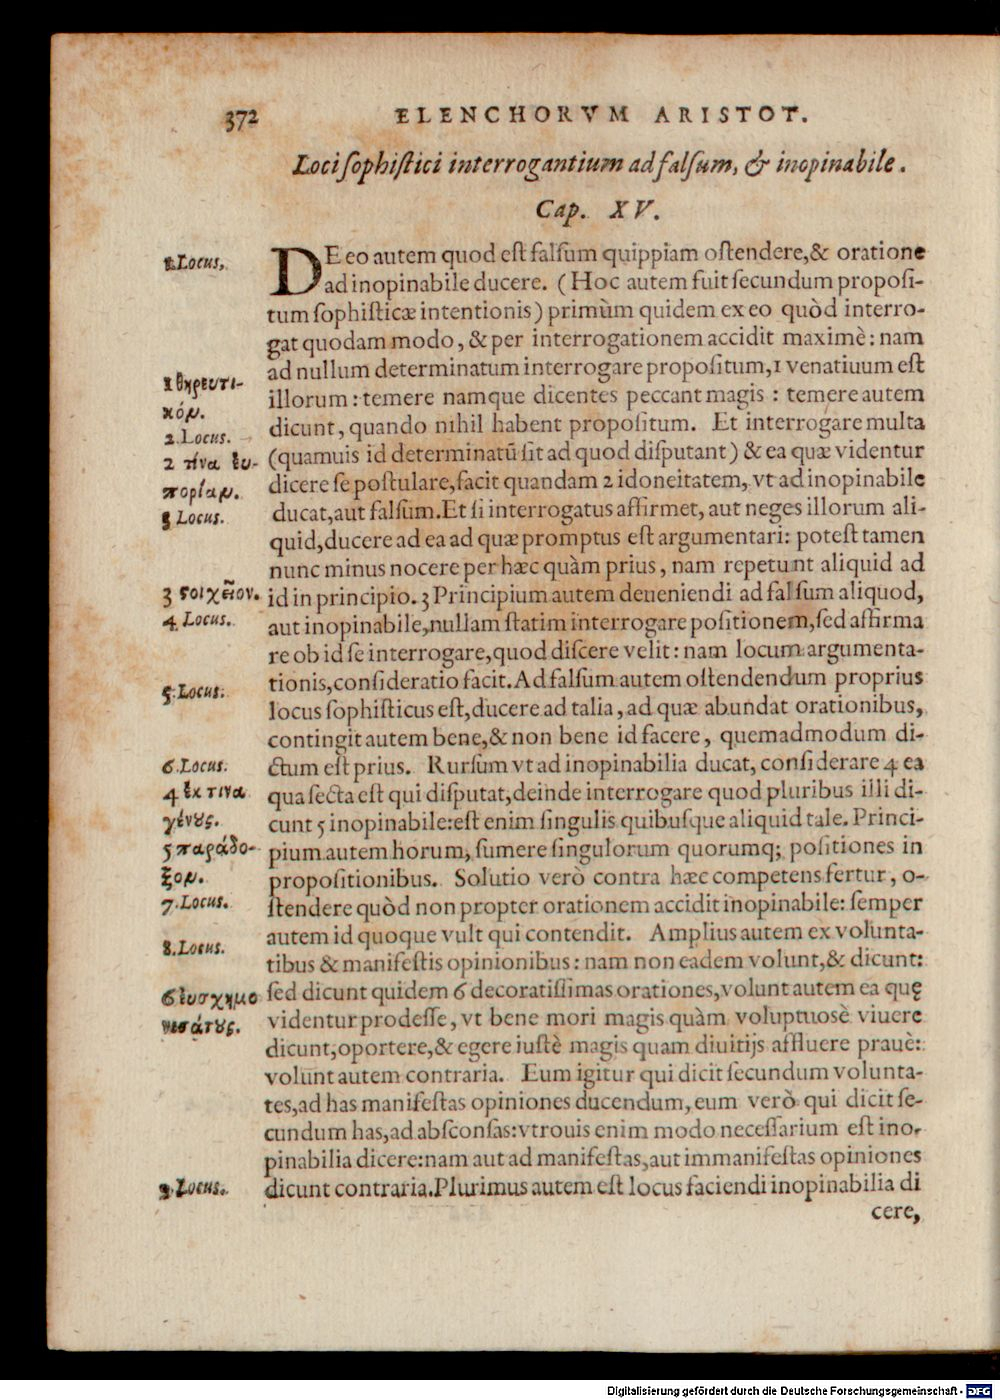 372 ELENCHORVM ARISTOT.
Loci sophistici interrogantium ad falsum, & inopinabile.
Cap. XV.
DE eo autem quod est falsum quippiam ostendere,& oratione
ad inopinabile ducere. (Hoc autem fuit secundum proposi-
tum sophisticæ intentionis) primùm quidem ex eo quòd interro-
gat quodam modo, & per interrogationem accidit maximè: nam
ad nullum determinatum interrogare propositum,1 venatiuum est
illorum: temere namque dicentes peccant magis : temere autem
dicunt, quando nihil habent propositum. Et interrogare multa
(quamuis id determinatū sit ad quod disputant) & ea quæ videntur
dicere se postulare,facit quandam 2 idoneitatem, vt ad inopinabile
ducat,aut falsum.Et si interrogatus affirmet, aut neges illorum ali-
quid,ducere ad ea ad quæ promptus est argumentari: potest tamen
nunc minus nocere per hæc quàm prius, nam repetunt aliquid ad
id in principio. 3 Principium autem deueniendi ad falsum aliquod,
aut inopinabile,nullam statim interrogare positionem,sed affirma
re ob id se interrogare,quod discere velit: nam locum argumenta-
tionis,consideratio facit. Ad falsum autem ostendendum proprius
locus sophisticus est,ducere ad talia, ad quæ abundat orationibus,
contingit autem bene,& non bene id facere, quemadmodum di-
ctum est prius. Rursum vt ad inopinabilia ducat, considerare 4 ea
qua secta est qui disputat,deinde interrogare quod pluribus illi di-
cunt 5 inopinabile:est enim singulis quibusque aliquid tale. Princi-
pium autem horum, sumere singulorum quorumq; positiones in
propositionibus. Solutio verò contra hæc competens fertur, o-
stendere quòd non propter orationem accidit inopinabile: semper
autem id quoque vult qui contendit. Amplius autem ex volunta-
tibus & manifestis opinionibus: nam non eadem volunt,& dicunt:
sed dicunt quidem 6 decoratissimas orationes,volunt autem ea quę
videntur prodesse, vt bene mori magis quàm voluptuosè viuere
dicunt,oportere,& egere iustè magis quam diuitijs affluere prauè:
volunt autem contraria. Eum igitur qui dicit secundum volunta-
tes,ad has manifestas opiniones ducendum, eum verò qui dicit se-
cundum has,ad absconsas:vtrouis enim modo necessarium est ino-
pinabilia dicere:nam aut ad manifestas,aut immanifestas opiniones
dicunt contraria.Plurimus autem est locus faciendi inopinabilia di
cere,
1 Locus,
1 θηρευτι-
κόν.
2 Locus.
2 τίνα ευ-
πορίαν.
3 Locus.
3 ϛοιχεῖον.
4. Locus.
5. Locus.
6. Locus.
4 ἐκ τίνα
γένȣς.
5 παράδο-
ξον.
7. Locus.
8. Locus.
6 ἐυσχημο
νεϛάτȣς.
9. Locus.
Digitalisierung gefördert durch die Deutsche Forschungsgemeinschaft - DFG